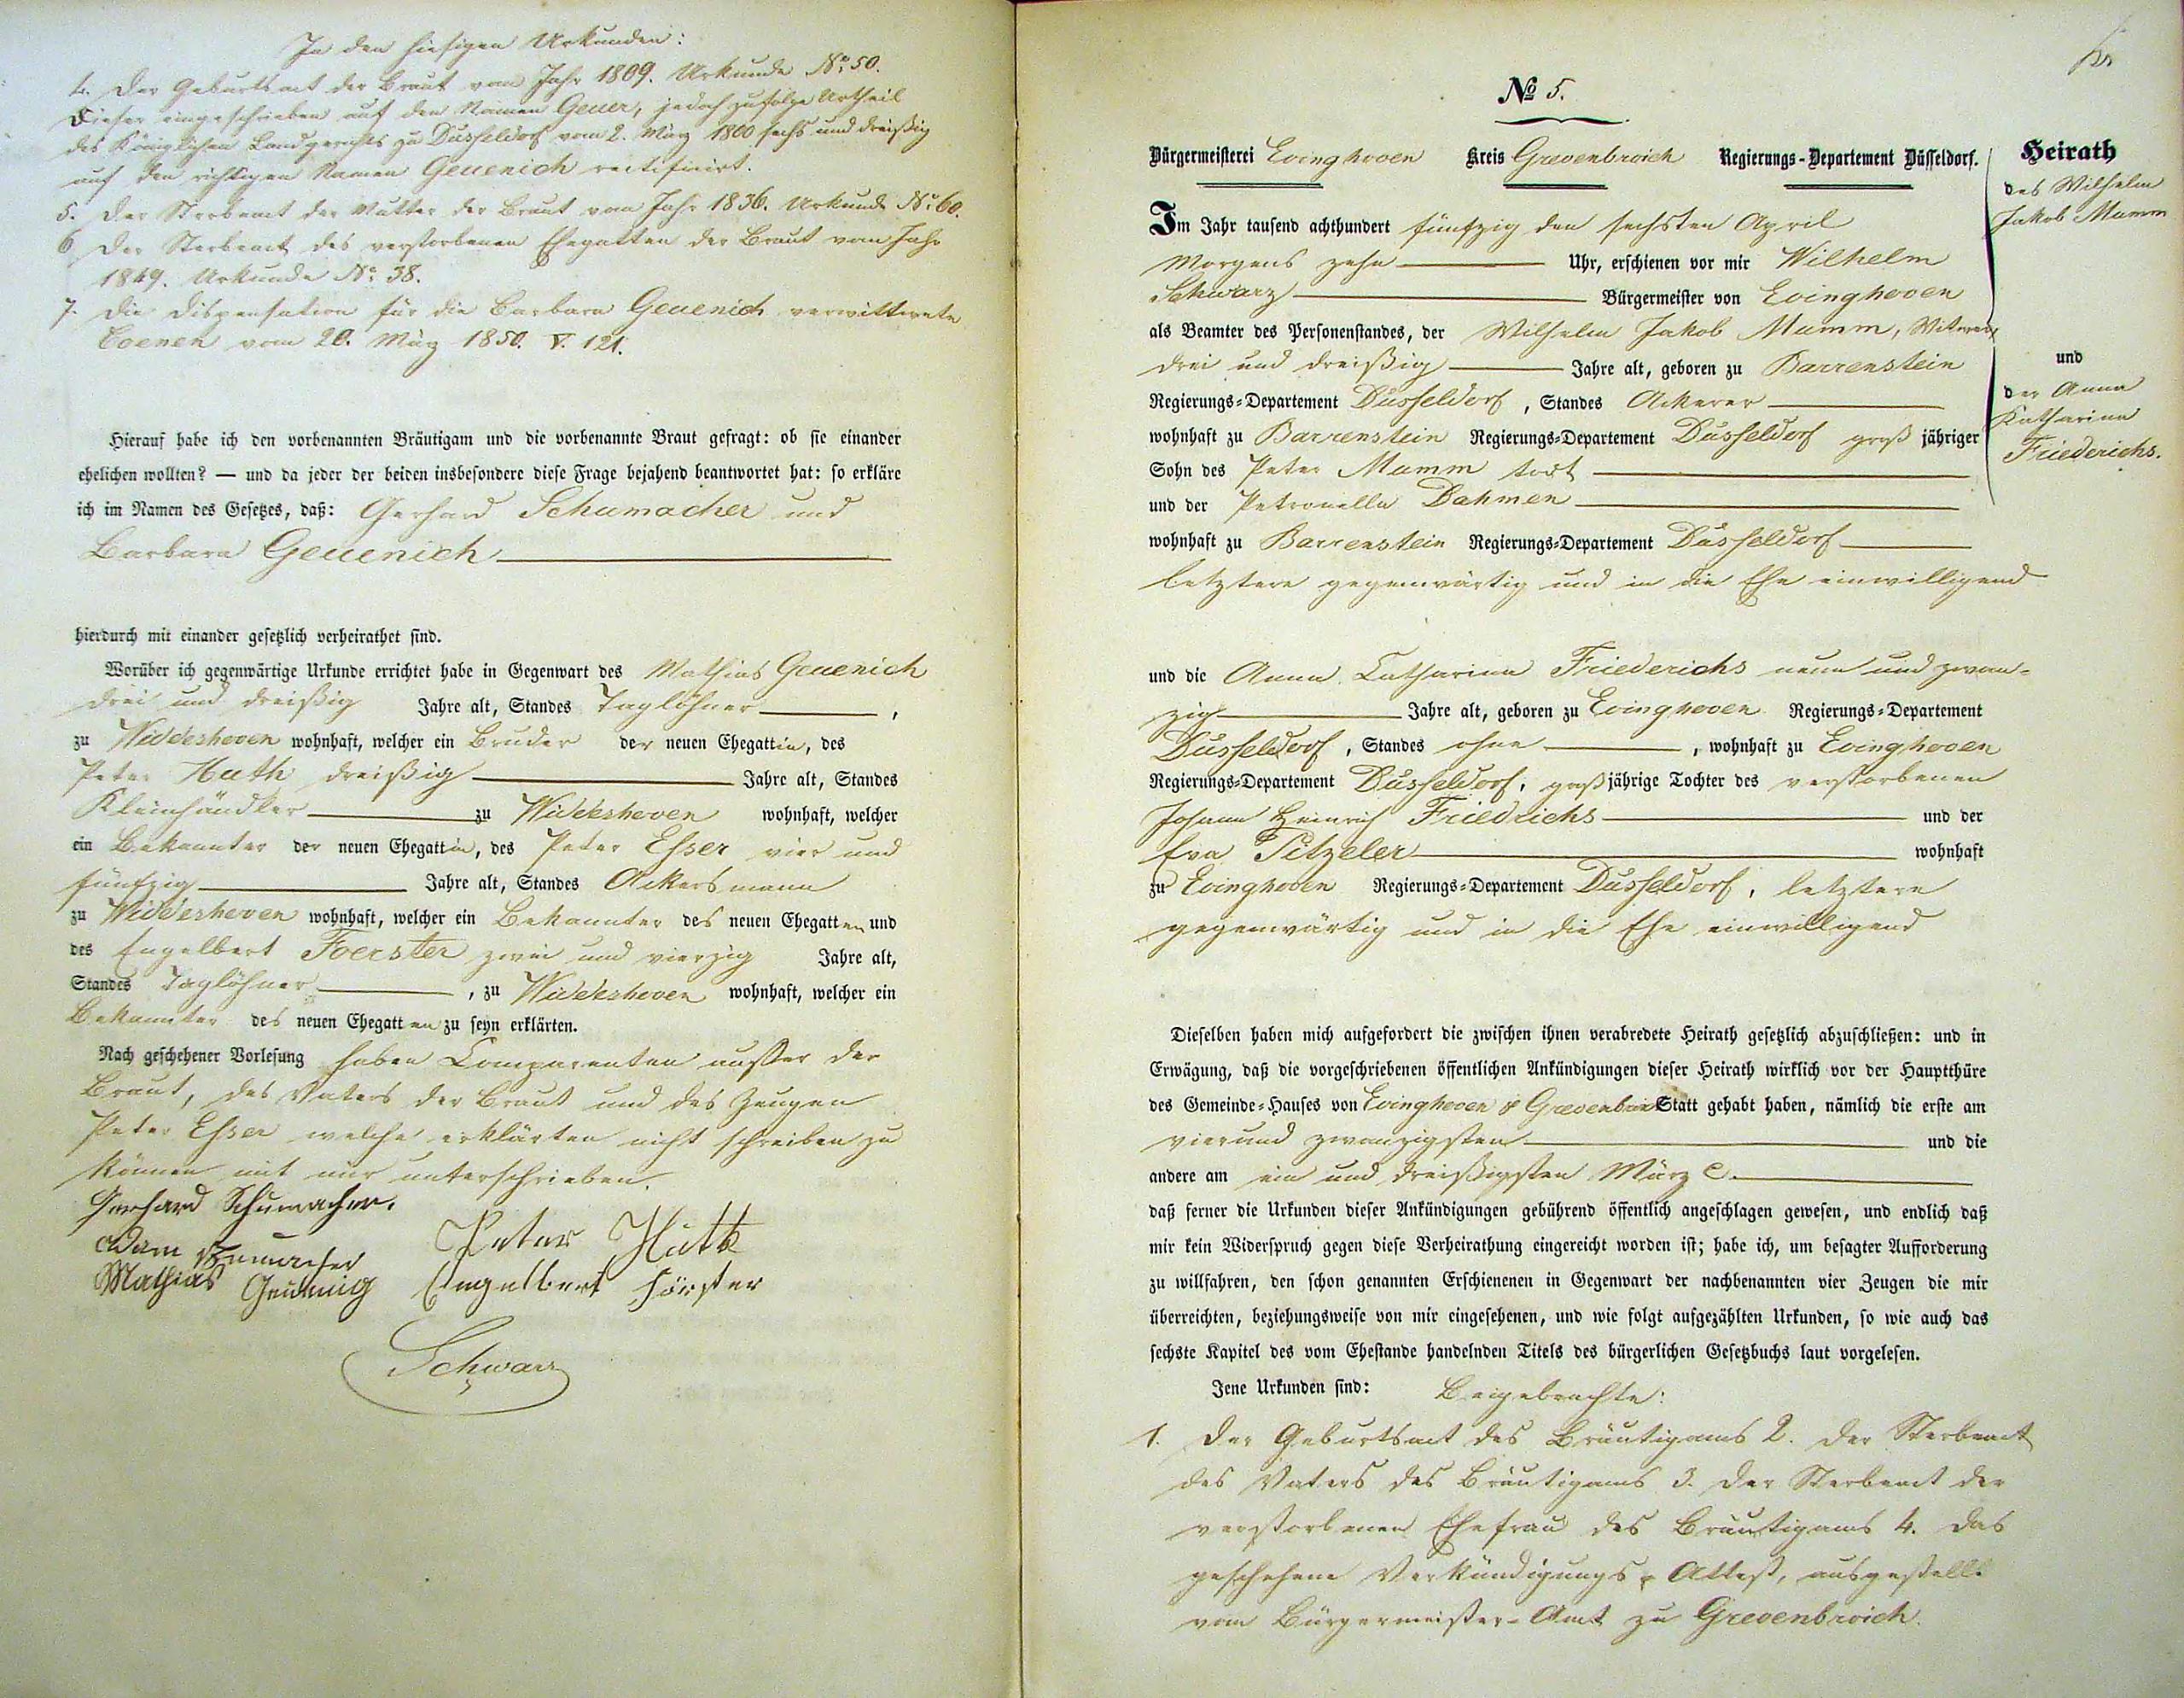 In den hiesigen Urkunden:
4. Der Geburtsact der Braut vom Jahr 1809. Urkunde No. 50.
Dieser eingeschrieben auf den Namen Geuer, jedoch zufolge Urtheil
des Königlichen Landgerichts zu Düsseldorf vom 2. März 1800 sechs und dreißig
auf den richtigen Namen Geuenich rectificirt.
5. Der Sterbeact der Mutter der Braut vom Jahr 1836. Urkunde No. 60.
6 Der Sterbeact des verstorbenen Ehegatten der Braut vom Jahr
1849. Urkunde No. 38.
7. Die Dispensation für die Barbara Geuenich verwittwete
Coenen vom 20. März 1850. V. 121.
Hierauf habe ich den vorbenannten Bräutigam und die vorbenannte Braut gefragt: ob sie einander
ehelichen wollten? — und da jeder der beiden insbesondere diese Frage bejahend beantwortet hat: so erkläre
ich im Namen des Gesetzes, daß: Gerhard Schumacher und
Barbara Geuenich
hierdurch mit einander gesetzlich verheirathet sind.
Worüber ich gegenwärtige Urkunde errichtet habe in Gegenwart des Mathias Geuenich
drei und dreißig Jahre alt, Standes Taglöhner ,
zu Widdeshoven wohnhaft, welcher ein Bruder der neuen Ehegattin, des
Peter Huth dreißig Jahre alt, Standes
Kleinhändler zu Widdeshoven wohnhaft, welcher
ein Bekannter der neuen Ehegattin, des Peter Esser vier und
fünfzig Jahre alt, Standes Ackersmann
zu Widdeshoven wohnhaft, welcher ein Bekannter des neuen Ehegatten und
des Engelbert Foerster zwei und vierzig Jahre alt,
Standes Taglöhner , zu Widdeshoven wohnhaft, welcher ein
Bekannter des neuen Ehegatten zu seyn erklärten.
Nach geschehener Vorlesung haben Comparenten außer der
Braut, des Vaters der Braut und des Zeugen
Peter Esser welche erklärten nicht schreiben zu
können mit mir unterschrieben.
Gerhard Schumacher.
Adam Schumacher
Peter Huth
Mathias Geuenig
Engelbert Förster
Schwarz
No 5.
Bürgermeisterei Evinghoven Kreis Grevenbroich Regierungs-Departement Düsseldorf.
Heirath
des Wilhelm
Jakob Mumm
und
der Anna
Katharina
Friederichs.
Im Jahr tausend achthundert fünfzig den sechsten April
Morgens zehn Uhr, erschienen vor mir Wilhelm
Schwarz Bürgermeister von Evinghoven
als Beamter des Personenstandes, der Wilhelm Jakob Mumm, Witwer,
drei und dreißig Jahre alt, geboren zu Barrenstein
Regierungs-Departement Düsseldorf, Standes Ackerer
wohnhaft zu Barrenstein Regierungs-Departement Düsseldorf groß jähriger
Sohn des Peter Mumm todt
und der Petronella Dahmen
wohnhaft zu Barrenstein Regierungs-Departement Düsseldorf
letztere gegenwärtig und in die Ehe einwilligend
und die Anna Catharina Friederichs neun und zwan-
zig Jahre alt, geboren zu Evinghoven Regierungs-Departement
Düsseldorf, Standes ohne , wohnhaft zu Evinghoven
Regierungs-Departement Düsseldorf, großjährige Tochter des verstorbenen
Johann Heinrich Friedrichs und der
Eva Pitzeler wohnhaft
zu Evinghoven Regierungs-Departement Düsseldorf, letztere
gegenwärtig und in die Ehe einwilligend
Dieselben haben mich aufgefordert die zwischen ihnen verabredete Heirath gesetzlich abzuschließen: und in
Erwägung, daß die vorgeschriebenen öffentlichen Ankündigungen dieser Heirath wirklich vor der Hauptthüre
des Gemeinde-Hauses von Evinghoven & Grevenbroich Statt gehabt haben, nämlich die erste am
vierund zwanzigsten und die
andere am ein und dreißigsten März c.
daß ferner die Urkunden dieser Ankündigungen gebührend öffentlich angeschlagen gewesen, und endlich daß
mir kein Widerspruch gegen diese Verheirathung eingereicht worden ist; habe ich, um besagter Aufforderung
zu willfahren, den schon genannten Erschienenen in Gegenwart der nachbenannten vier Zeugen die mir
überreichten, beziehungsweise von mir eingesehenen, und wie folgt aufgezählten Urkunden, so wie auch das
sechste Kapitel des vom Ehestande handelnden Titels des bürgerlichen Gesetzbuchs laut vorgelesen.
Jene Urkunden sind: Beigebrachte:
1. Der Geburtsact des Bräutigams 2. der Sterbeact
des Vaters des Bräutigams 3. der Sterbeact der
verstorbenen Ehefrau des Bräutigams 4. das
geschehene Verkündigungs-Attest, ausgestellt
vom Bürgermeister-Amt zu Grevenbroich.